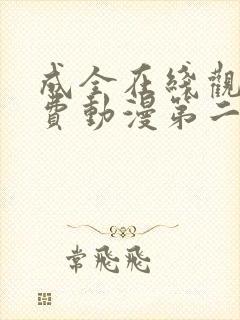 成全在綫觀
費動漫第二
常飛飛